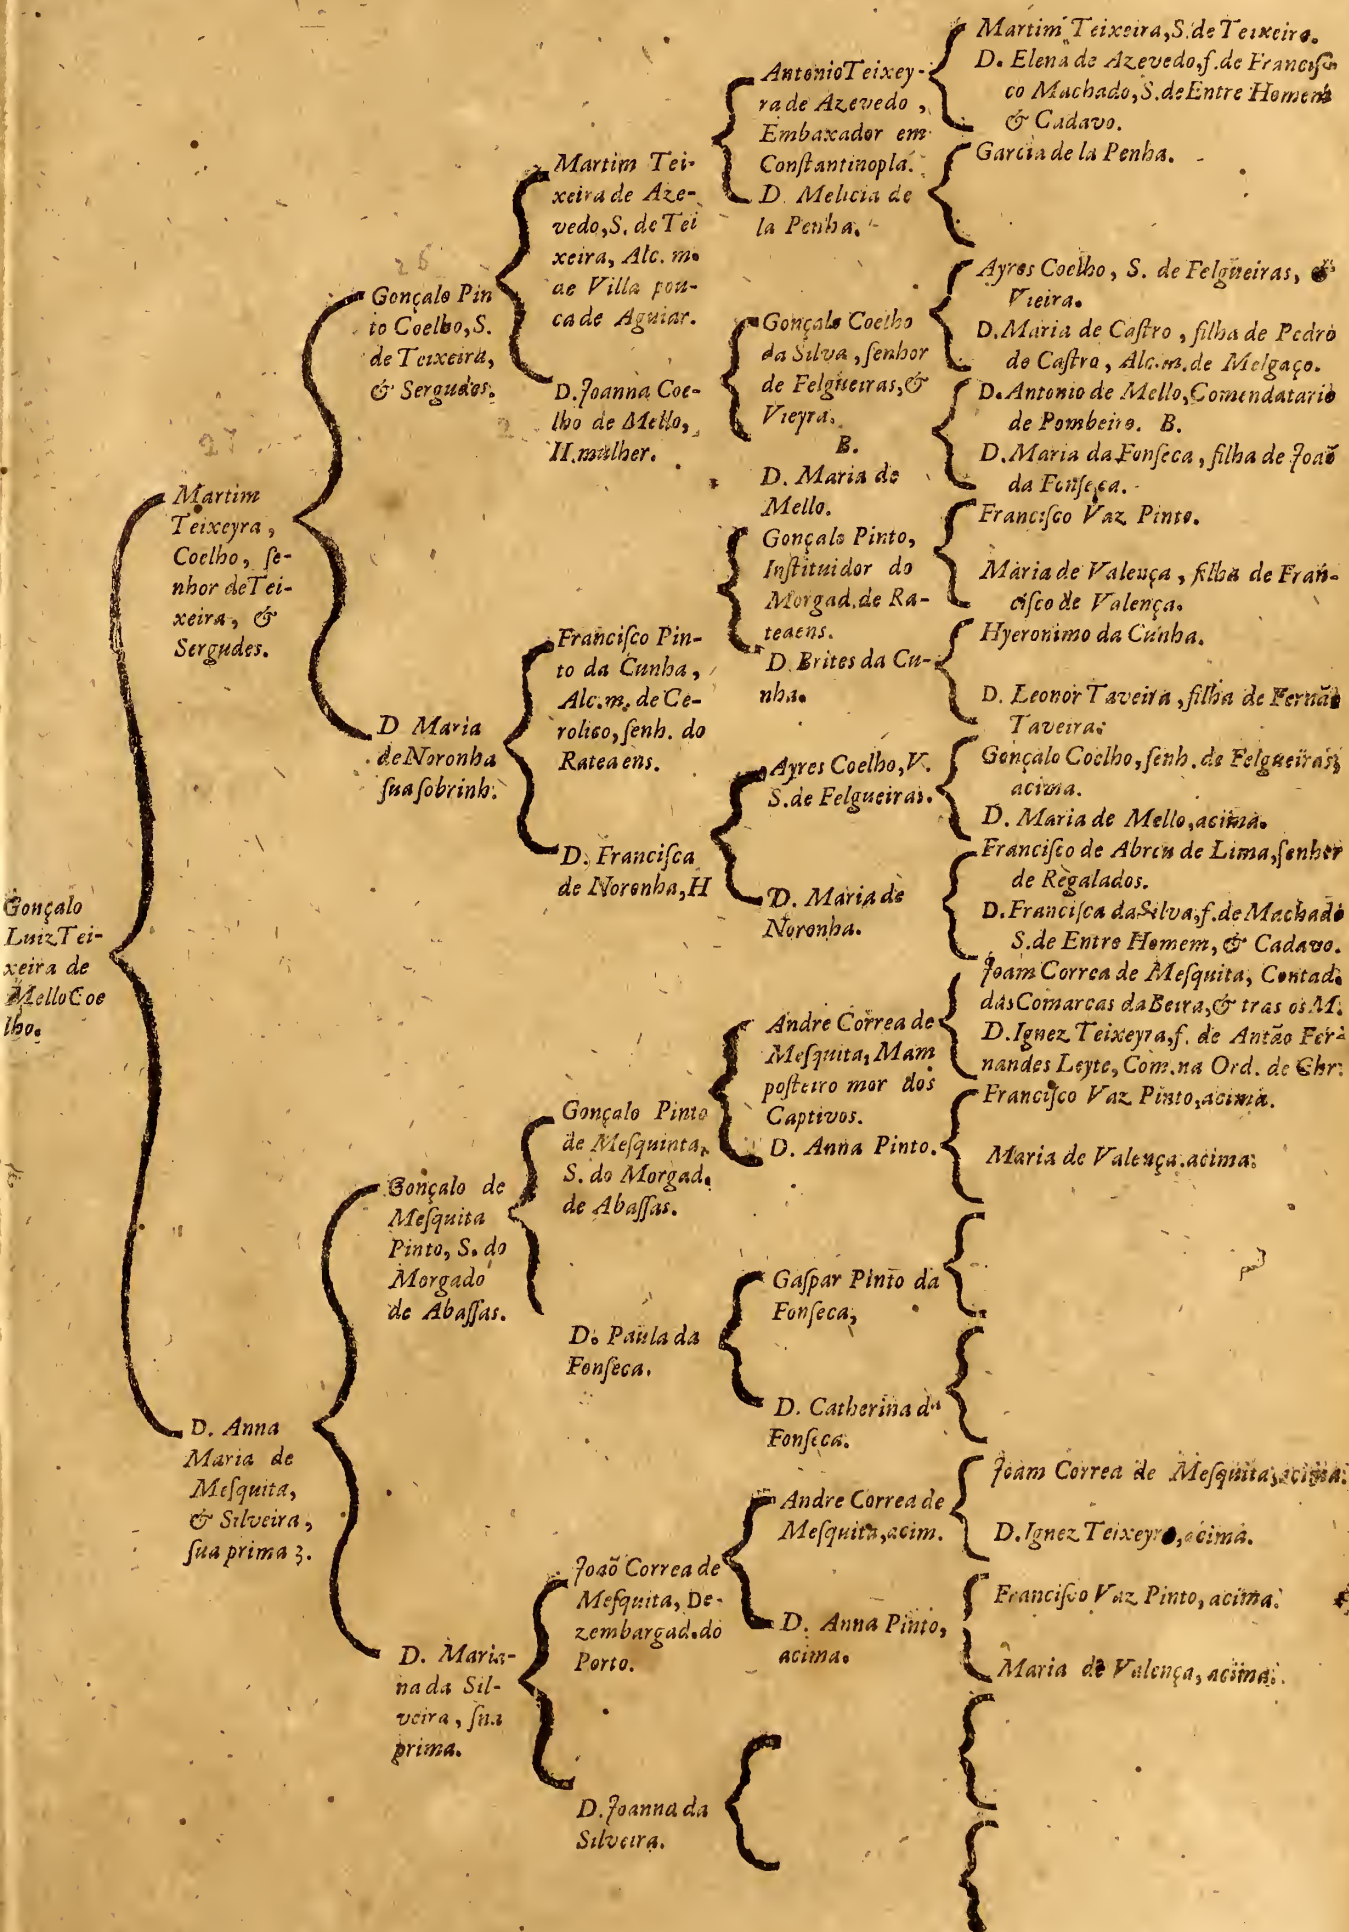 Gonçalo
Luiz Tei-
xeira de
Mello Coe
lho.
Martim
Teixeyra,
Coelho, ſe-
nhor de Tei-
xeira, &
Sergudes.
D. Anna
Maria de
Meſquita,
& Silveira,
ſua prima 3.
26
Gonçalo Pin
to Coelho, S.
de Teixeira,
& Sergudes.
27
D Maria
de Noronha
ſua ſobrinh.
Gonçalo de
Meſquita
Pinto, S. do
Morgado
de Abaſſas.
D. Maria-
na da Sil-
veira, ſua
prima.
Martim Tei-
xeira de Aze-
vedo, S. de Tei
xeira, Alc. m.
de Villa pou-
ca de Aguiar.
D. Joanna Coe-
lho de Mello,
H. mulher.
Franciſco Pin-
to da Cunha,
Alc. m. de Ce-
rolico, ſenh. do
Rateaens.
D. Franciſca
de Noronha, H
Gonçalo Pinto
de Meſquinta,
S. do Morgad.
de Abaſſas.
D. Paula da
Fonſeca.
Joaõ Correa de
Meſquita, De-
zembargad. do
Porto.
D. Joanna da
Silveira.
Antonio Teixey-
ra de Azevedo,
Embaxador em
Conſtantinopla.
D. Melicia de
la Penha.
Gonçalo Coelho
da Silva, ſenhor
de Felgueiras, &
Vieyra.
B.
D. Maria de
Mello.
Gonçalo Pinto,
Inſtituidor do
Morgad. de Ra-
teaens.
D. Brites da Cu-
nha.
Ayres Coelho, V.
S. de Felgueiras.
D. Maria de
Noronha.
Andre Correa de
Meſquita, Mam
poſteiro mor dos
Captivos.
D. Anna Pinto.
Gaſpar Pinto da
Fonſeca,
D. Catherina da
Fonſeca.
Andre Correa de
Meſquita, acim.
D. Anna Pinto,
acima.
Martim Teixeira, S. de Teixeira.
D. Elena de Azevedo, f. de Franciſ-
co Machado, S. de Entre Homem
& Cadavo.
Garcia de la Penha.
Ayres Coelho, S. de Felgueiras, &
Vieira.
D. Maria de Caſtro, filha de Pedro
de Caſtro, Alc. m. de Melgaço.
D. Antonio de Mello, Comendatario
de Pombeiro. B.
D. Maria da Fonſeca, filha de Joaõ
da Fonſeca.
Franciſco Vaz Pinto.
Maria de Valença, filha de Fran-
ciſco de Valença.
Hyeronimo da Cunha.
D. Leonor Taveira, filha de Fernão
Taveira.
Gonçalo Coelho, ſenh. de Felgueiras,
acima.
D. Maria de Mello, acima.
Franciſco de Abreu de Lima, ſenhor
de Regalados.
D. Franciſca da Silva, f. de Machado
S. de Entre Homem, & Cadavo.
Joam Correa de Meſquita, Contad.
das Comarcas da Beira, & tras os M.
D. Ignez Teixeyra, f. de Antão Fer-
nandes Leyte, Com. na Ord. de Chr.
Franciſco Vaz Pinto, acima.
Maria de Valença. acima.
Joam Correa de Meſquita, acima.
D. Ignez Teixeyra, acima.
Franciſco Vaz Pinto, acima.
Maria de Valença, acima.